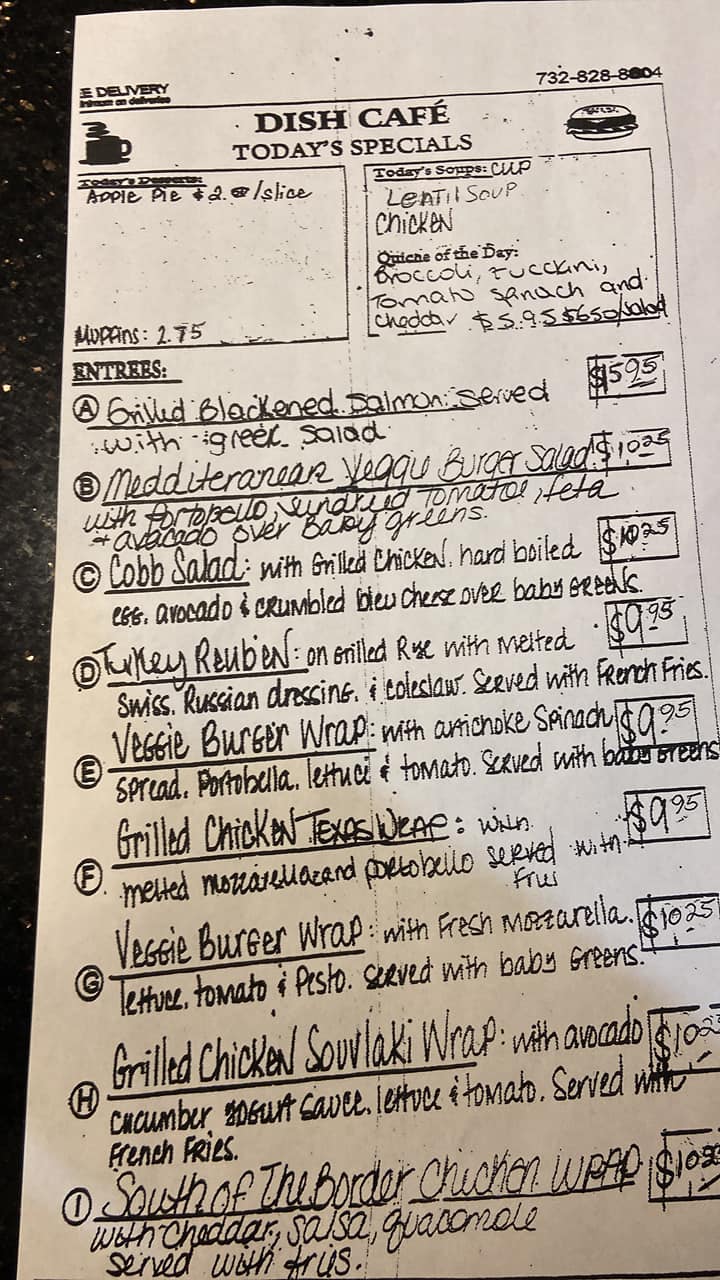 E DELIVERY
732-828-8804
DISH CAFÉ
TODAY'S SPECIALS
Today's Desserts:
APPle Pie $2.00/slice
MUPPINS: 2.75
Today's Soups: CUP
LeNTIl SOUP
CHICKEN
Quiche of the Day:
Broccoli, zucckini,
Tomato spinach and
cheddar $5.95 $6.50/salad
ENTREES:
A Grilled Blackened Salmon: Served $15.95
with greek salad
B Medditeranean Veggie Burger Salad $10.25
with portobello, sundried Tomatoe, feta
+ avacado over Baby greens.
C Cobb Salad: with Grilled Chicken, hard boiled $10.25
egg, avocado & crumbled bleu cheese over baby GREENS.
D Turkey Reuben: on Grilled Rye with Melted $9.95
Swiss, Russian dressing, & coleslaw. Served with French Fries.
E Veggie Burger Wrap: with artichoke Spinach $9.95
spread, Portobella, lettuce & tomato. Served with baby Greens
F Grilled Chicken Texas Wrap: with $9.95
melted mozzarella and portobello served with
fries
G Veggie Burger Wrap: with Fresh Mozzarella, $10.25
lettuce, tomato & Pesto. Served with baby Greens.
H Grilled Chicken Souvlaki Wrap: with avocado $10.2
cucumber yogurt sauce, lettuce & tomato. Served with
French Fries.
I South of The Border Chicken Wrap $10.
with cheddar, salsa, guacomole
served with fries.